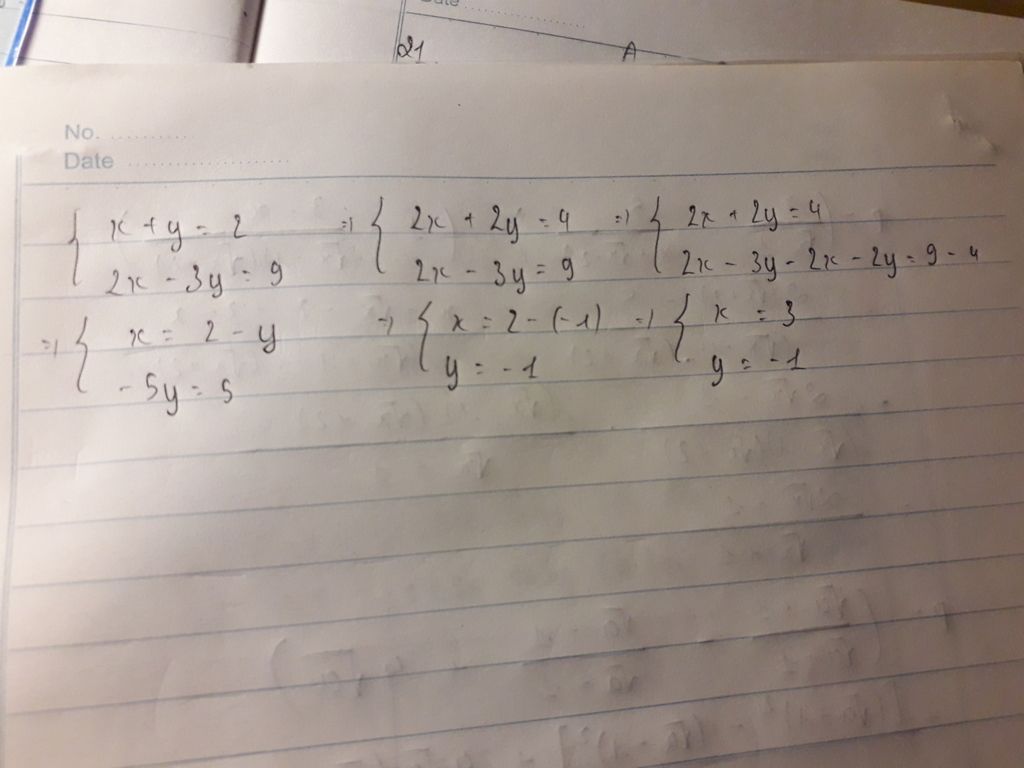 Date
21 A
No.
Date
{ x + y = 2 => { 2x + 2y = 4 => { 2x + 2y = 4
2x - 3y = 9 2x - 3y = 9 2x - 3y - 2x - 2y = 9 - 4
=> { x = 2 - y => { x = 2 - (-1) => { x = 3
- 5y = 5 y = -1 y = -1